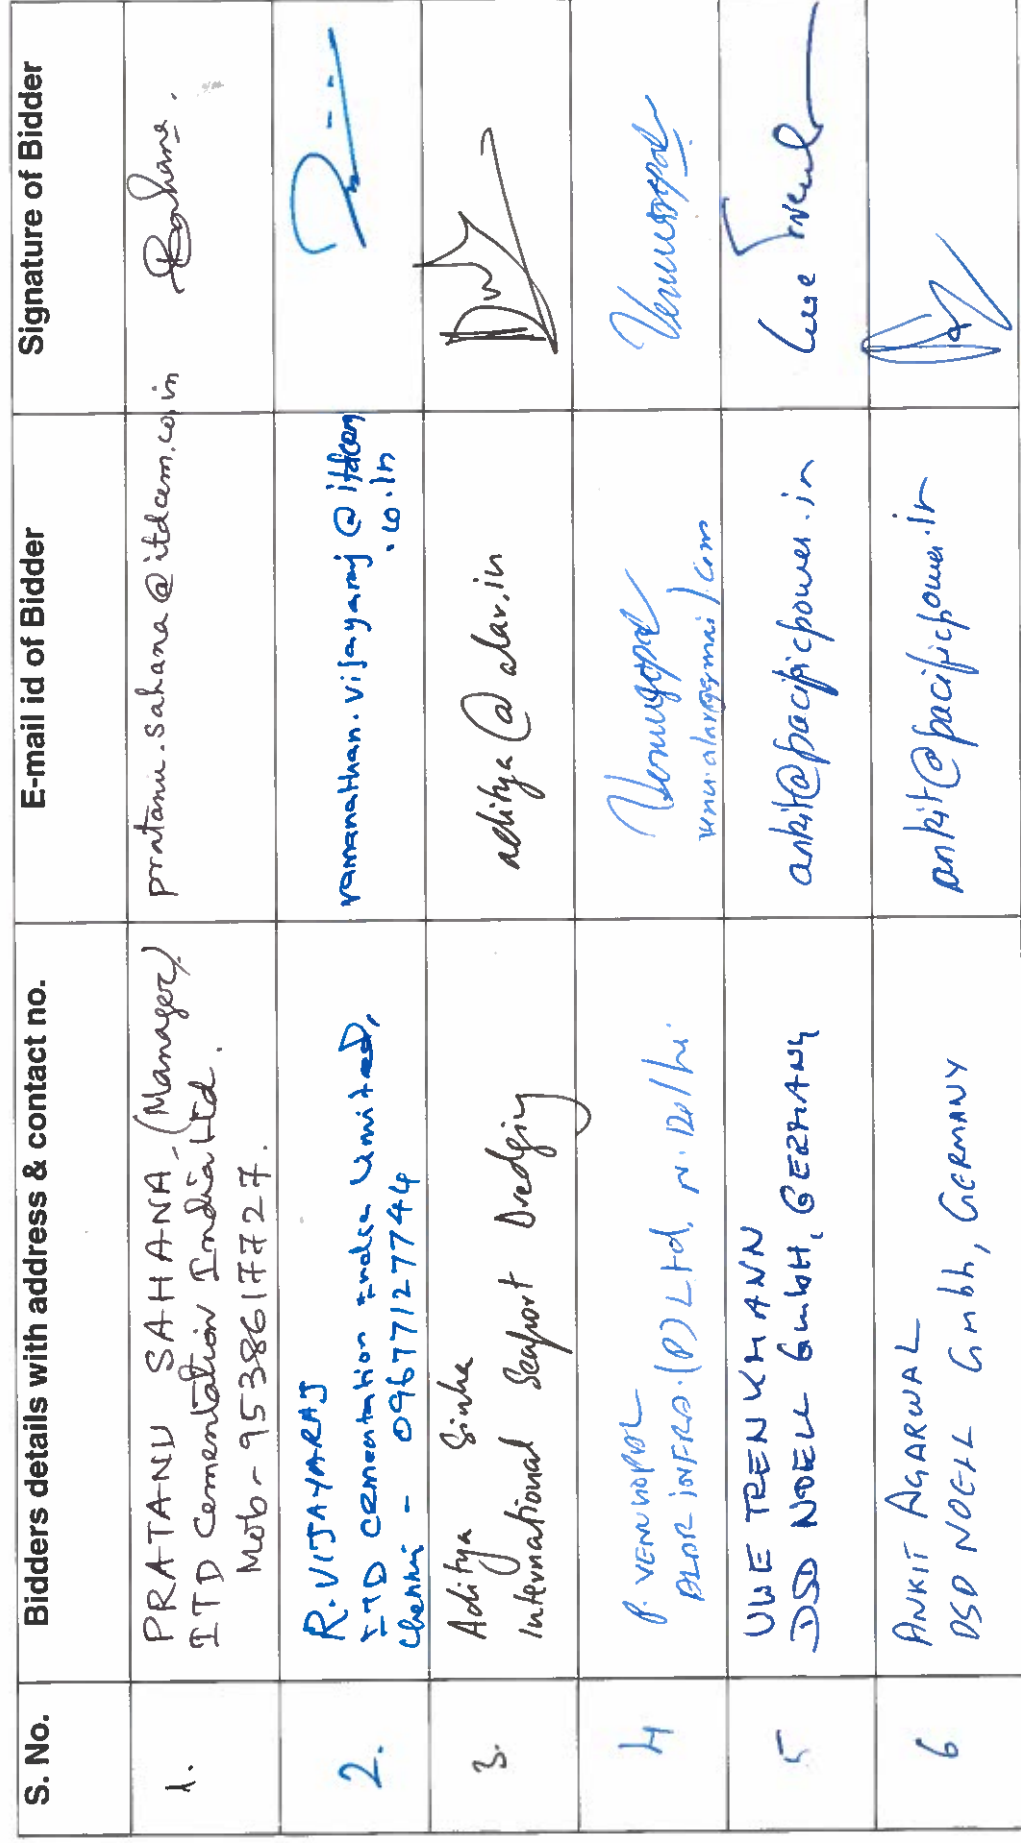 S. No.
Bidders details with address & contact no.
E-mail id of Bidder
Signature of Bidder
1.
PRATANU SAHANA (Manager)
ITD Cementation India Ltd.
Mob - 9538617727.
pratanu.sahana@itdcem.co.in
2.
R. VIJAYARAJ
ITD cementation India Limited,
Chennai - 09677127744
ramanathan.vijayaraj@itdcem
.co.in
3.
Aditya Sinha
International Seaport Dredging
aditya@alar.in
4
P. VENUGOPAL
ALAR INFRA.(P) Ltd, N. Delhi.
Venugopal
Venugopal
5
UWE TRENKMANN
DSD NOELL GmbH, GERMANY
ankit@pacificpower.in
Uwe Trenk
6
ANKIT AGARWAL
DSD NOELL Gmbh, GERMANY
ankit@pacificpower.in